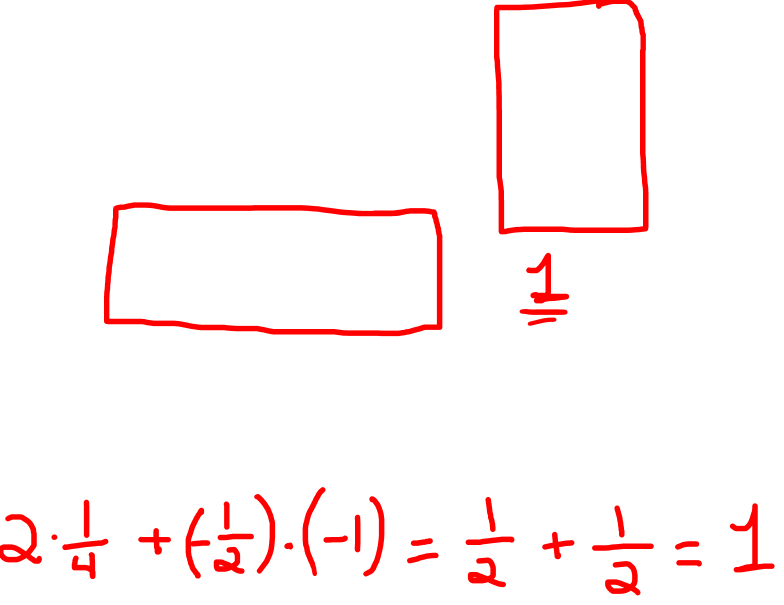 1
2 · 1/4 + (-1/2) · (-1) = 1/2 + 1/2 = 1